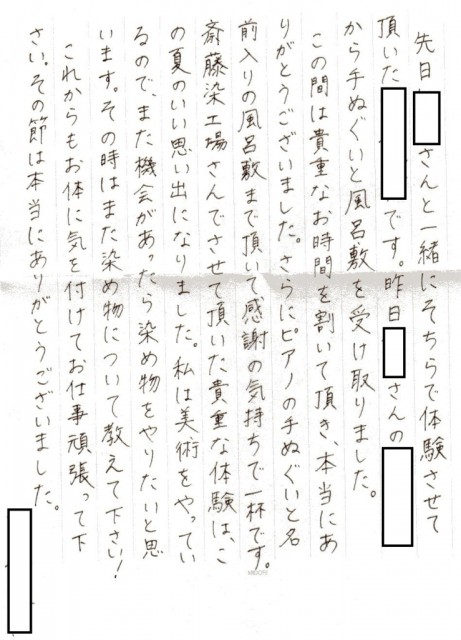 先日 さんと一緒にそちらで体験させて
頂いた です。昨日 さんの
から手ぬぐいと風呂敷を受け取りました。
この間は貴重なお時間を割いて頂き本当にあ
りがとうございました。さらにピアノの手ぬぐいと名
前入りの風呂敷まで頂いて感謝の気持ちで一杯です。
斎藤染工場さんでさせて頂いた貴重な体験は、こ
の夏のいい思い出になりました。私は美術をやってい
るので、また機会があったら染め物をやりたいと思
います。その時はまた染め物について教えて下さい!
これからもお体に気を付けてお仕事頑張って下
さい。その節は本当にありがとうございました。